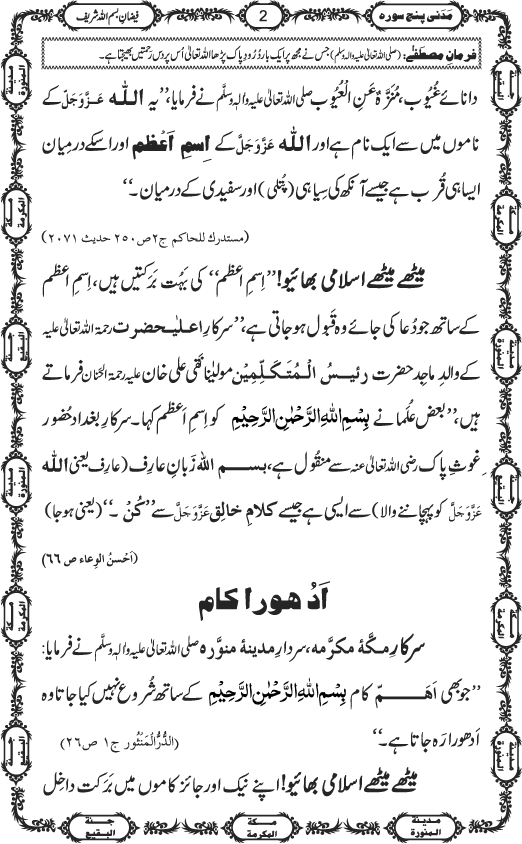 مَدَنی پنج سورہ
2
فیضانِ بسم اللہ شریف
فرمانِ مصطَفٰے: (صلی اللہ تعالیٰ علیہ والہٖ وسلّم) جس نے مجھ پر ایک بار دُرُودِ پاک پڑھا اللہ تعالیٰ اُس پر دس رَحمتیں بھیجتا ہے۔
دانائے غُیُوب، مُنَزَّہٌ عَنِ الْعُیُوب صلی اللہ تعالیٰ علیہ والہٖ وسلّم نے فرمایا، ’’یہ اللہ عَزَّوَجَلَّ کے
ناموں میں سے ایک نام ہے اور اللہ عَزَّوَجَلَّ کے اِسمِ اَعْظَم اور اسکے درمیان
ایسا ہی قُرب ہے جیسے آنکھ کی سیاہی (پُتلی) اور سفیدی کے درمیان۔‘‘
(مستدرك للحاكم ج۲ ص۲۵۰ حديث ۲۰۷۱)
میٹھے میٹھے اسلامی بھائیو! ’’اِسمِ اعظم‘‘ کی بَہُت بَرَکتیں ہیں، اِسمِ اعظم
کے ساتھ جو دُعا کی جائے وہ قَبول ہو جاتی ہے، ’’سرکارِ اعلیٰحضرت رحمۃ اللہ تعالیٰ علیہ
کے والدِ ماجِد حضرت رئیسُ الْمُتَکَلِّمِین مولیٰنا نقی علی خان علیہ رحمۃ الحنّان فرماتے
ہیں، ’’بعض عُلَما نے بِسْمِ اللهِ الرَّحْمٰنِ الرَّحِيْم کو اِسمِ اَعظم کہا۔ سرکارِ بغداد حُضُور
غوثِ پاک رضی اللہ تعالیٰ عنہ سے منقول ہے، بسم اللہ زَبانِ عارِف (عارِف یعنی اللہ
عَزَّوَجَلَّ کو پہچاننے والا) سے ایسی ہے جیسے کلامِ خالِق عَزَّوَجَلَّ سے ’’کُنْ۔‘‘ (یعنی ہوجا)
(اَحْسَنُ الْوِعاء ص ۶۶)
اَدْھورا کام
سرکارِ مکّۂ مکرَّمہ، سردارِ مدینۂ منوَّرہ صلی اللہ تعالیٰ علیہ والہٖ وسلّم نے فرمایا:
’’جو بھی اَہَم کام بِسْمِ اللهِ الرَّحْمٰنِ الرَّحِيْم کے ساتھ شُروع نہیں کیا جاتا وہ
اَدھورا رَہ جاتا ہے۔‘‘
(الدُّرُّ الْمَنْثُور ج۱ ص۲۶)
میٹھے میٹھے اسلامی بھائیو! اپنے نیک اور جائز کاموں میں بَرَکت داخِل
مدینة المنورة
مكة المكرمة
جنة البقيع